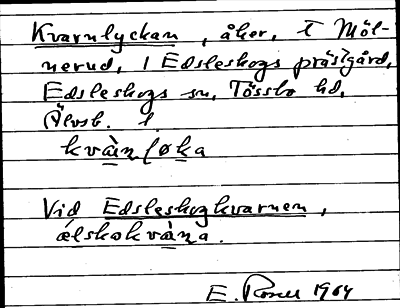 Kvarnlyckan, åker, t Möl-
nerud, i Edsleskogs prästgård,
Edsleskogs sn, Tössbo hd,
Älvsb. l.
kvànløka
Vid Edsleskogkvarnen,
ælskokvàna.
E. Rosell 1964